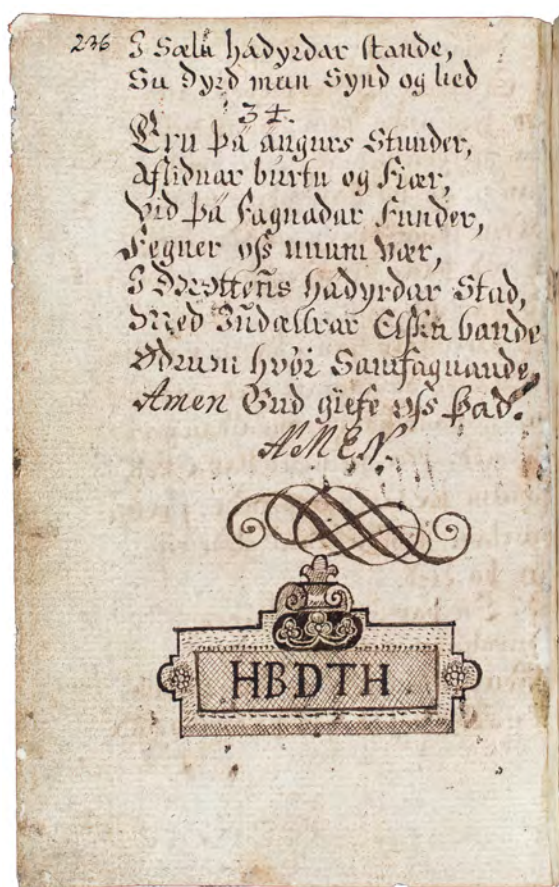 236 I Sælu hádyrdar stande,
Su dyrd mun Synd og lied
34.
Eru þá ángurs Stunder,
aflidnar burtu og Fiær,
vid þá Fagnadar Funder,
Fegner oss unum vær,
I Drottens hádyrdar Stad,
Med Indællrar Elsku bande
Ødrum hvör Samfagnande,
Amen Gud giefe oss þad.
AMEN.
HBDTH